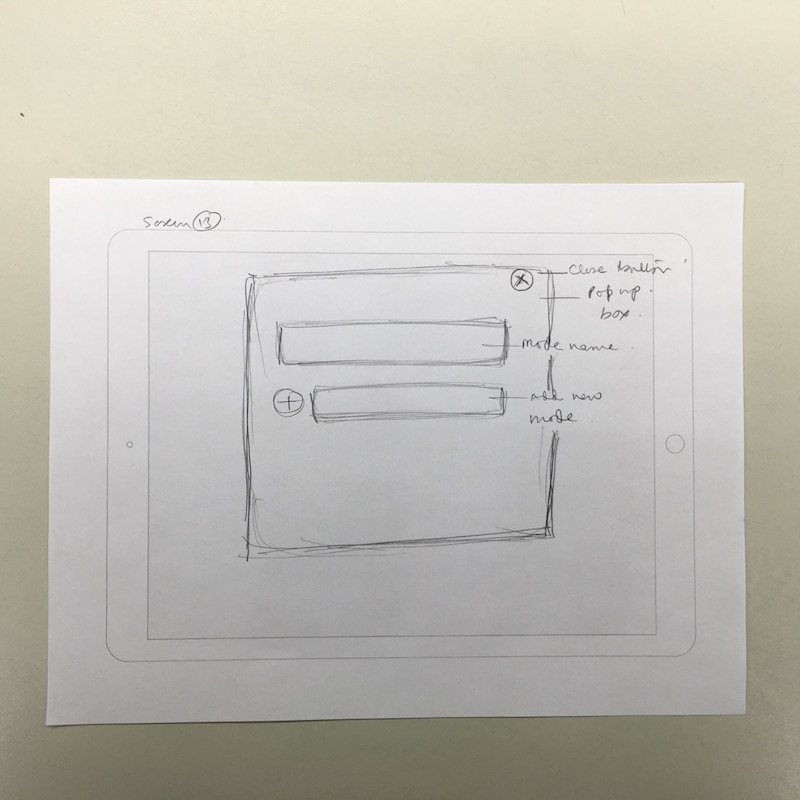 Screen 13
Close button
Pop up
box.
mode name.
add new
mode.